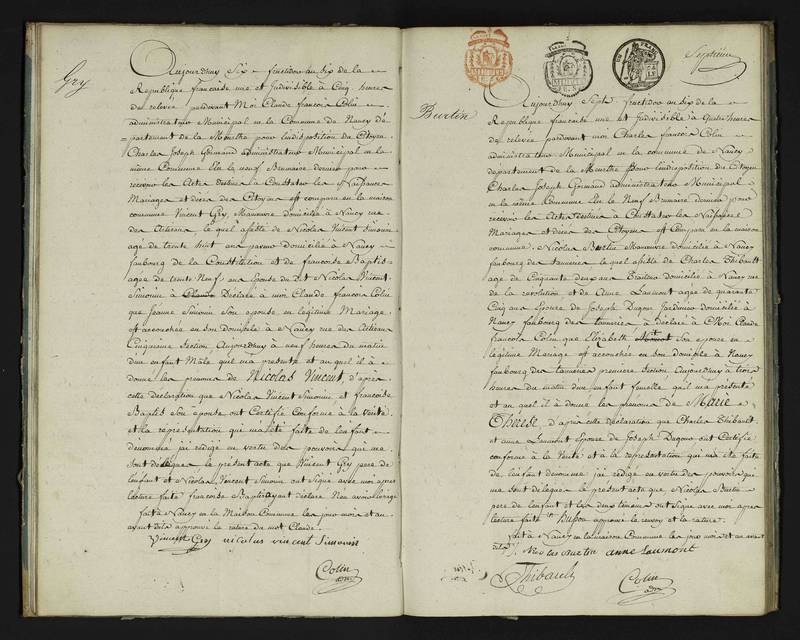 Gry
Aujourdhuy Six fructidor an Six de la
République francoise une et Indivisible à Cinq heures
de relevée pardevant Moi Claude francois Colin
administrateur Municipal en la Commune de Nancy dé-
=partement de la Meurthe pour lindisposition du Citoyen
Charles Joseph Germand administrateur Municipal en la
même Commune Elu le neuf Brumaire dernier pour
recevoir les Actes destinés à Constater les Naissances
Mariages et décès des Citoyens est comparu en la maison
commune Vincent Gry, Manœuvre domicilié à Nancy rue
des lequel assisté de Nicolas Vincent Simonin
agé de trente huit ans domicilié à Nancy
faubourg de la Constitution et de francoise Baptis
agée de trente Neuf ans Epouse du dit Nicolas Vincent
Simonin a Claude Déclaré à moi Claude francois Colin
que Jeanne Simonin Son epouse en legitime Mariage
est accouchée en Son domicile à Nancy rue des
Cinquieme Section Aujourdhuy à neuf heures du matin
d'un enfant Mâle quil ma presenté et auquel il à
donné les prenoms de Nicolas Vincent, d'après
cette déclaration que Nicolas Vincent Simonin et francoise
Baptis Son epouse ont Certifié Conforme à la Verité
et la représentation qui ma été faite de lenfant
denommé jai rédigé en vertu des pouvoirs qui me
Sont délégués le présent acte que Vincent Gry pere de
lenfant et Nicolas Vincent Simonin ont Signé avec moi apres
lecture faite francoise Baptis ayant declaré Ne
fait à Nancy en la Maison Commune les jour mois et an
avant dits approuvé la rature du mot Claude.
Vincent Gry nicolas vincent Simonin
Colin
adm
Septieme
Burtin
Aujourdhuy Sept fructidor an Six de la
République francoise une et Indivisible à Quatre heures
de relevée pardevant moi Claude francois Colin
administrateur Municipal en la commune de Nancy
département de la Meurthe Pour lindisposition du Citoyen
Charles Joseph Germand administrateur Municipal
en la même Commune Elu le Neuf Brumaire dernier pour
recevoir les Actes destinés à Constater les Naissances
Mariages et décès des Citoyens est Comparu en la maison
commune. Nicolas Burtin Manœuvre domicilié à Nancy
faubourg des tanneries lequel assisté de Charles Thibault
agé de Cinquante deux ans Traiteur domicilié à Nancy rue
de la revolution et de Anne Laumont agée de quarante
Cinq ans Epouse de Joseph Dugon Jardinier domicilié à
Nancy faubourg des tanneries à déclaré à Moi Claude
francois Colin que Elizabeth Son epouse en
legitime Mariage est accouchée en Son domicile à Nancy
faubourg des tanneries premiere Section Aujourdhuy à trois
heures du matin d'un enfant femelle quil ma présenté
et auquel il à donné les prénoms de Marie
Therese, d'apres cette déclaration que Charles Thibault
et anne Laumont Epouse de Joseph Dugon ont Certifié
conforme à la Verité et à la représentation qui ma été faite
de lenfant denommé jai rédigé en vertu des pouvoirs qui
me Sont délégués le présent acte que Nicolas Burtin
pere de lenfant et les deux temoins ont Signé avec moi apres
lecture faite approuvé le renvoy et la rature.
fait à Nancy en la maison Commune les jour mois et an avant
dits. Nicolas burtin anne Laumont
Thibault
Colin
adm